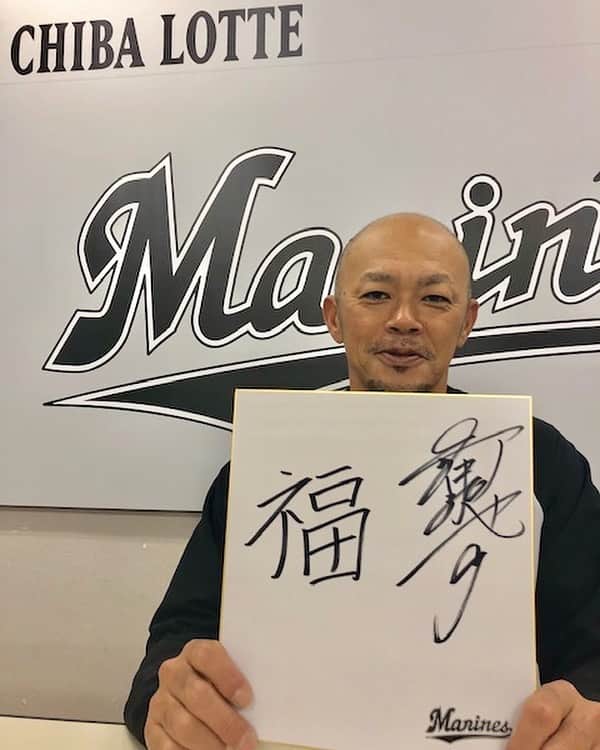 CHIBA LOTTE
Marin
福
9
Marines